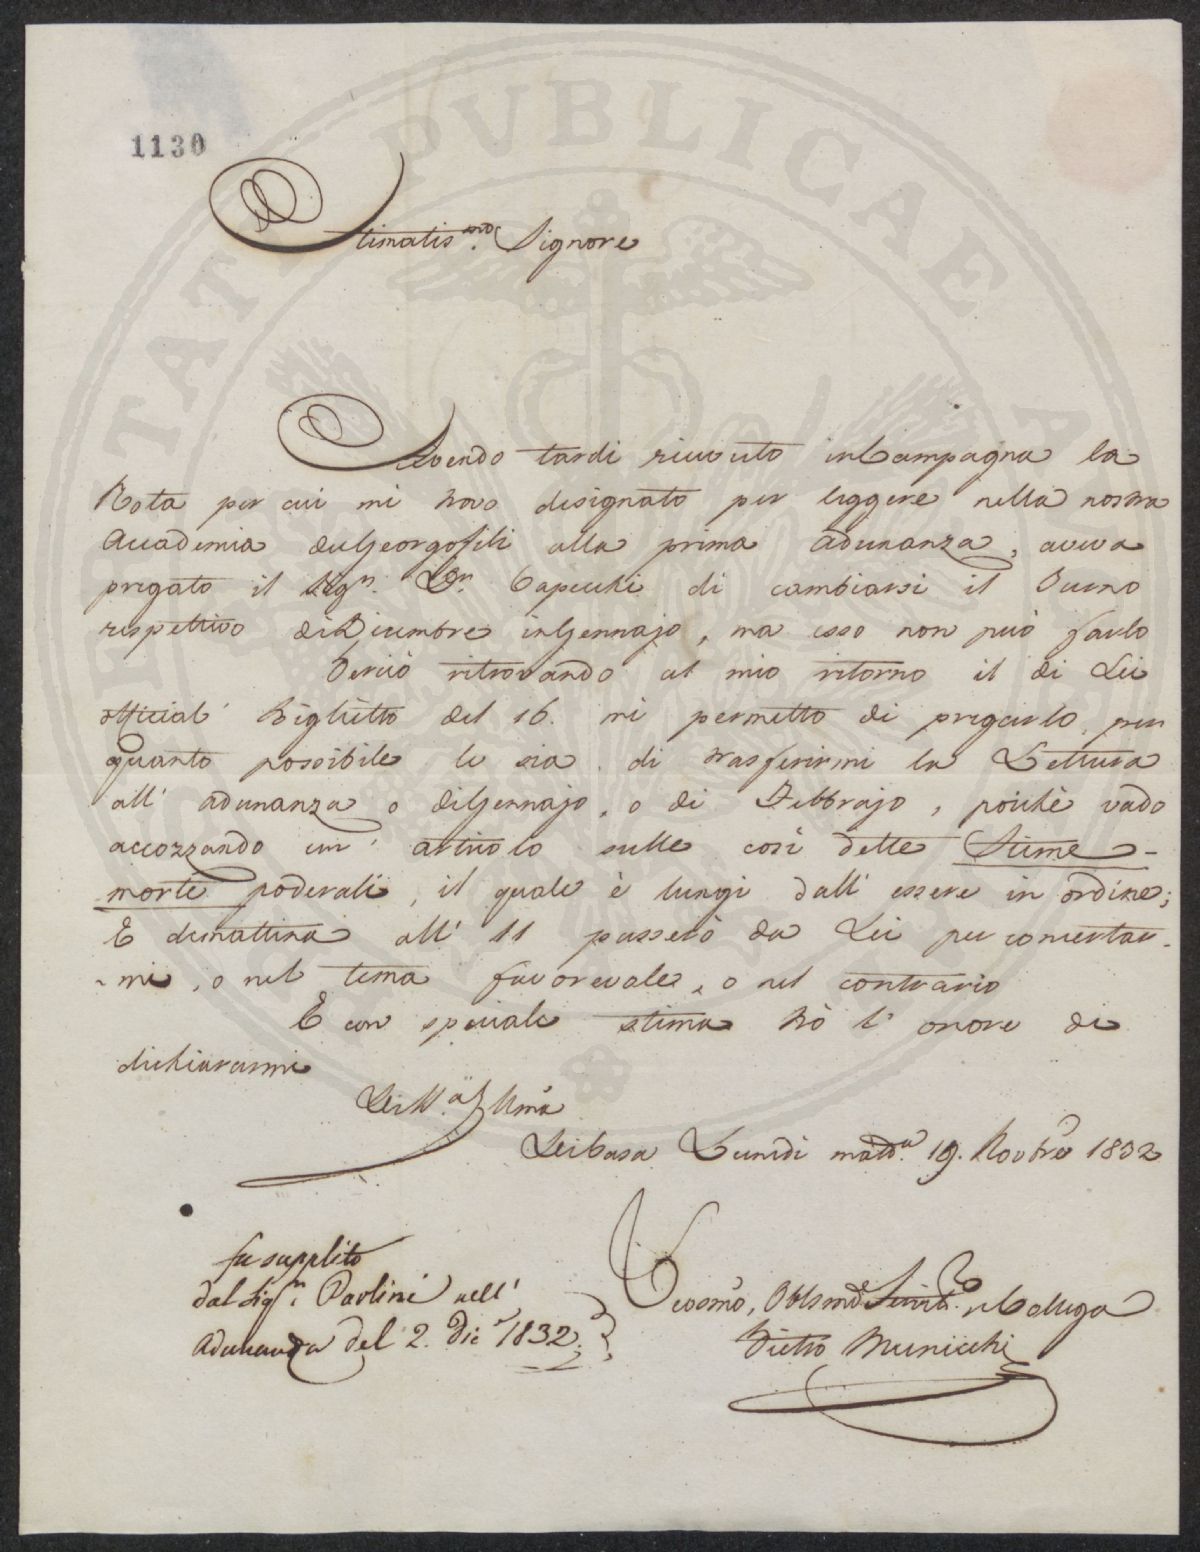 1130
Stimatis.mo Signore
Avendo tardi ricevuto in Campagna la
Nota per cui mi trovo designato per leggere nella nostra
Accademia dei Georgofili alla prima adunanza, aveva
pregato il Sig.r D.r Capecchi di cambiarsi il Turno
respettivo di Dicembre in Gennajo, ma esso non può farlo
Perciò ritrovando al mio ritorno il di Lei
official' Biglietto del 16. mi permetto di pregarlo, per
quanto possibile le sia, di trasferirmi la Lettura
all' adunanza o di Gennajo, o di Febbrajo, poichè vado
accozzando un' articolo sulle così dette Stime-
morte poderali, il quale è lungi dall' essere in ordine;
E dimattina all' 11 passerò da Lei per concertar-
-mi, o nel tema favorevole, o nel contrario
E con speciale stima hò l' onore di
dichiararmi
Di Casa Lunedì matt.a 19. Novbre 1832
fu supplito
dal Sig.r Paolini nell'
Adunanza del 2. Dic.e 1832.
Devosmo, Obblsmo Servit.e e Collega
Pietro Municchi
PUBLICAE